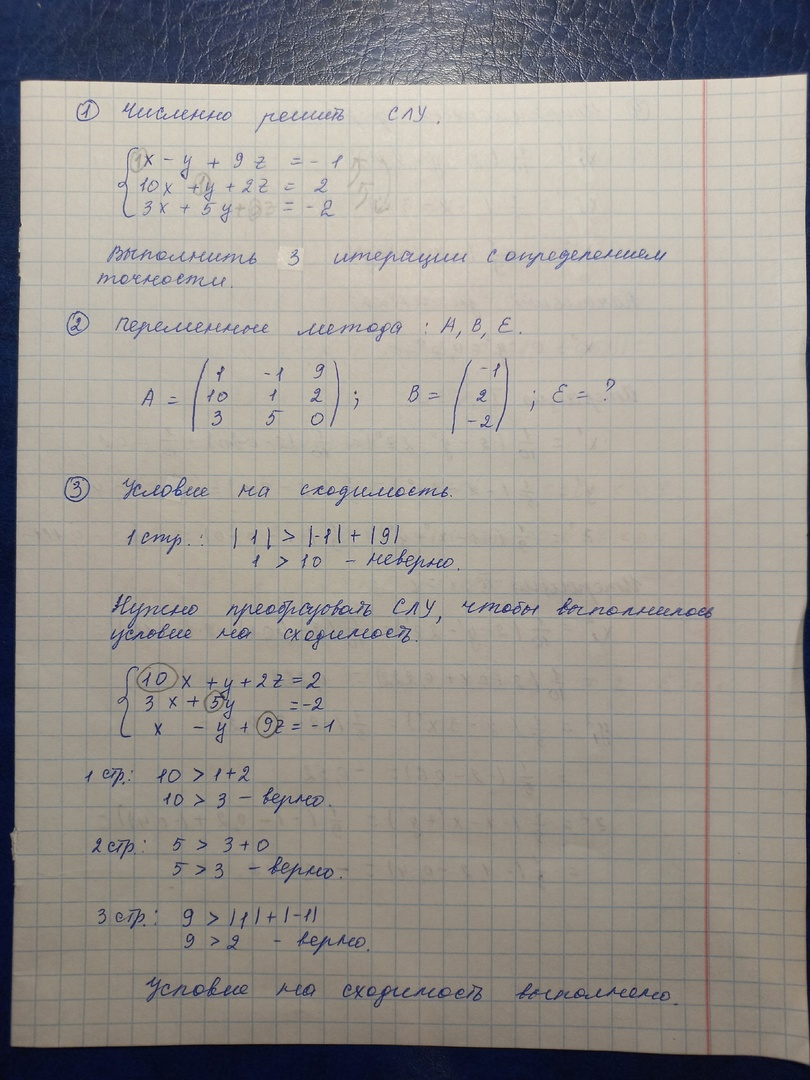 ① Численно решить СЛУ.
x - y + 9z = -1
10x + y + 2z = 2
3x + 5y = -2
Выполнить 3 итерации с определением
точности.
② Переменные метода: A, B, E.
A = (1 -1 9; 10 1 2; 3 5 0); B = (-1; 2; -2); E = ?
③ Условие на сходимость.
1 стр.: |1| > |-1| + |9|
1 > 10 - неверно.
Нужно преобразовать СЛУ, чтобы выполнилось
условие на сходимость.
10x + y + 2z = 2
3x + 5y = -2
x - y + 9z = -1
1 стр.: 10 > 1+2
10 > 3 - верно.
2 стр: 5 > 3+0
5 > 3 - верно.
3 стр.: 9 > |1| + |-1|
9 > 2 - верно.
Условие на сходимость выполнено.